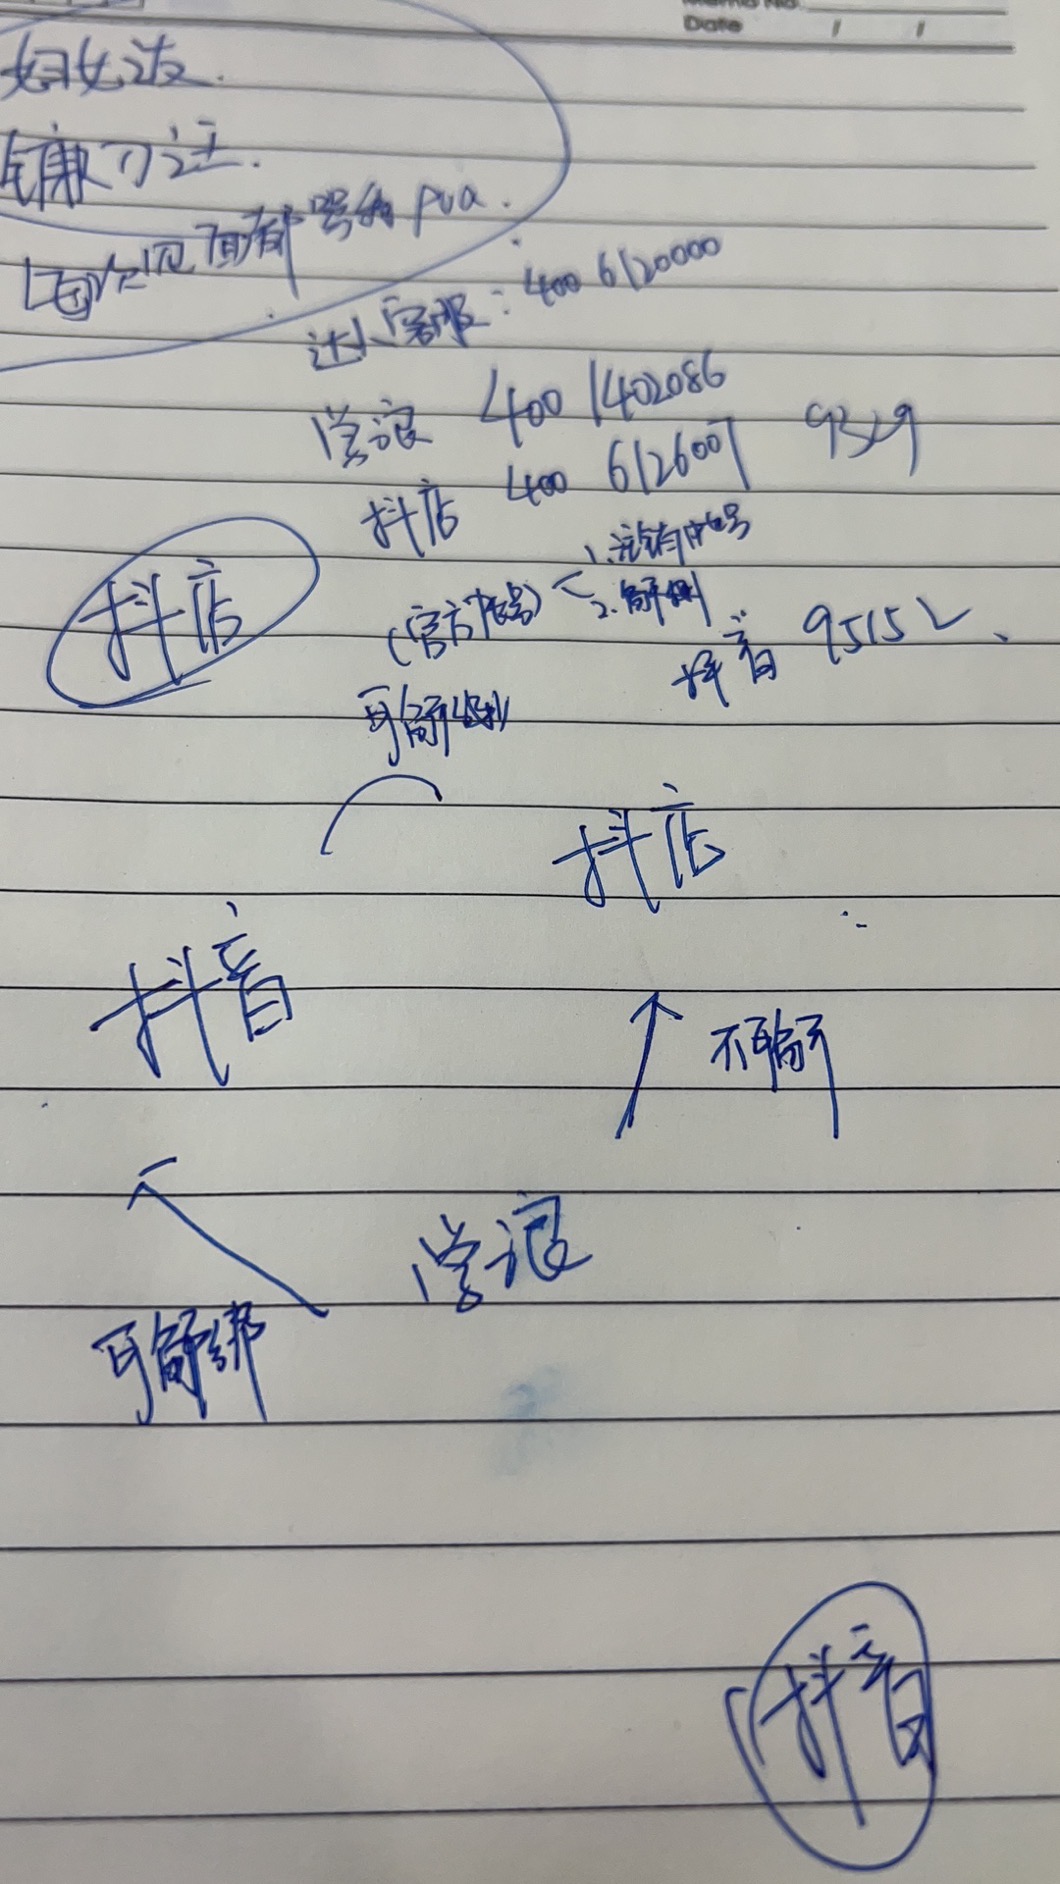 Memo No.
Date / /
妇女波.
镰刀过.
每次见面都 pua.
达人客服: 400 6120000
学浪 400 1402086
抖店 400 6126007 9329
抖店
(官方账号) 1. 注销账号
2. 解绑
抖音 95152、
可解绑
抖店
抖音
不可解
学浪
可解绑
抖音